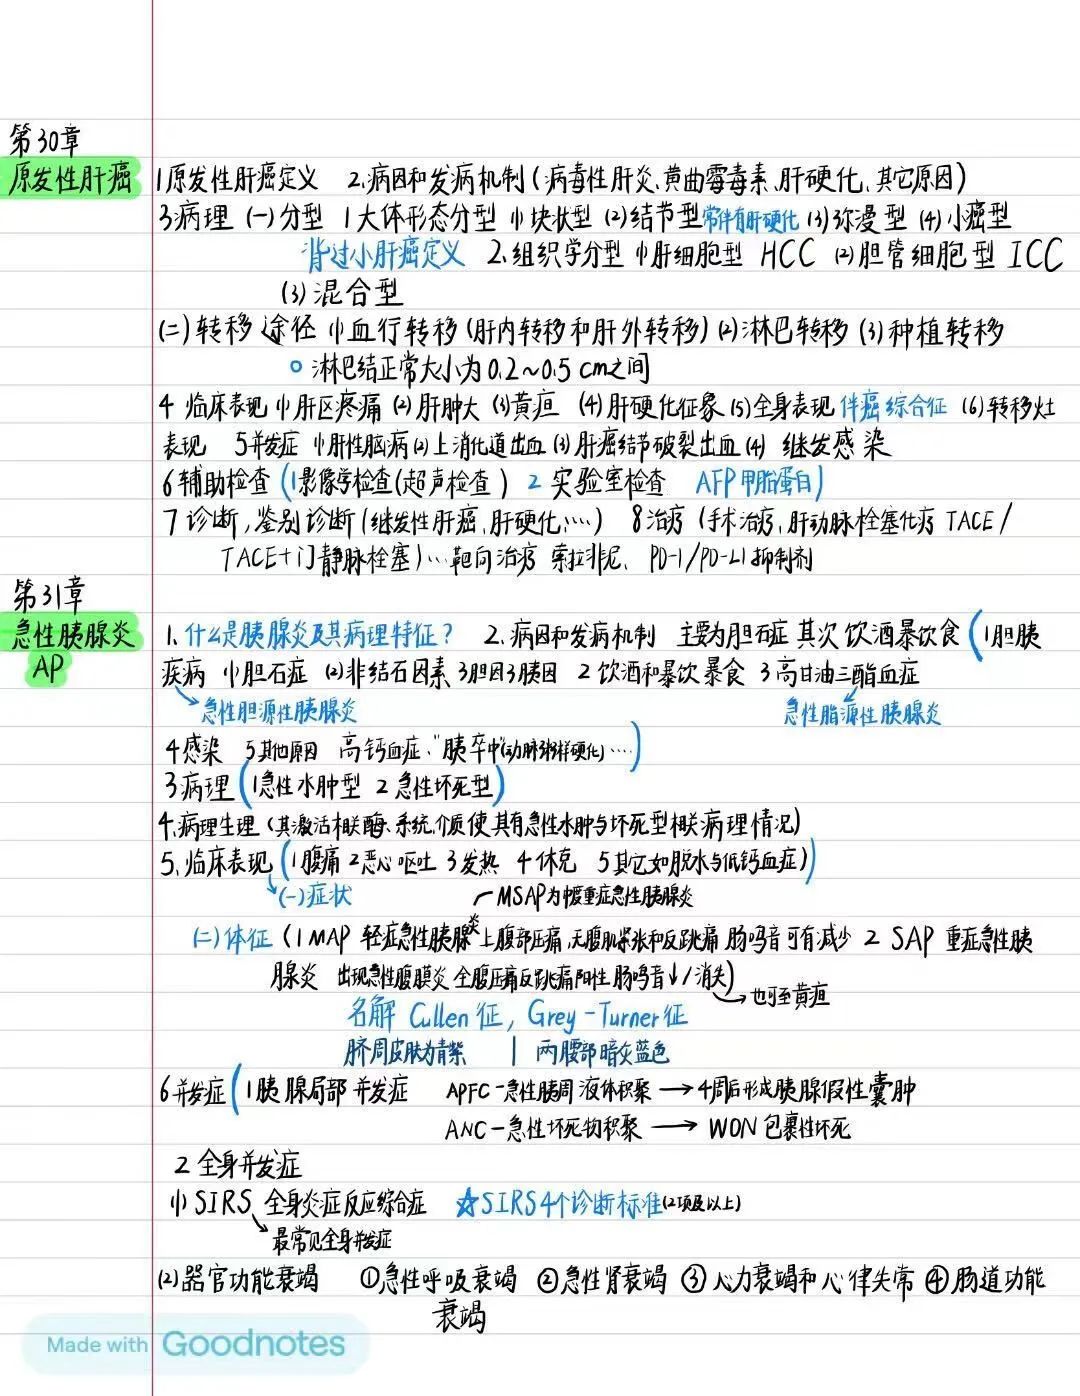 第30章
原发性肝癌
1原发性肝癌定义 2.病因和发病机制(病毒性肝炎、黄曲霉毒素、肝硬化、其它原因)
3病理 (一)分型 1大体形态分型 (1)块状型 (2)结节型常伴有肝硬化 (3)弥漫型 (4)小癌型
背过小肝癌定义 2.组织学分型 (1)肝细胞型 HCC (2)胆管细胞型 ICC
(3)混合型
(二)转移途径 (1)血行转移(肝内转移和肝外转移) (2)淋巴转移 (3)种植转移
淋巴结正常大小为0.2~0.5cm之间
4 临床表现 (1)肝区疼痛 (2)肝肿大 (3)黄疸 (4)肝硬化征象 (5)全身表现 伴癌综合征 (6)转移灶
表现 5并发症 (1)肝性脑病 (2)上消化道出血 (3)肝癌结节破裂出血 (4) 继发感染
6辅助检查(1影像学检查(超声检查) 2 实验室检查 AFP甲胎蛋白)
7诊断,鉴别诊断(继发性肝癌、肝硬化,…) 8治疗 (手术治疗、肝动脉栓塞化疗 TACE/
TACE+门静脉栓塞)…靶向治疗 索拉非尼、PD-1/PD-L1抑制剂
第31章
急性胰腺炎
AP
1.什么是胰腺炎及其病理特征? 2.病因和发病机制 主要为胆石症 其次饮酒暴饮食(1胆胰
疾病 (1)胆石症 (2)非结石因素 3胆因3胰因 2饮酒和暴饮暴食 3高甘油三酯血症
急性胆源性胰腺炎 急性脂源性胰腺炎
4感染 5其他原因 高钙血症、"胰卒中"(动脉粥样硬化)…)
3病理(1急性水肿型 2急性坏死型)
4.病理生理 (其激活相关酶、系统、介质使其有急性水肿与坏死型相关病理情况)
5.临床表现(1腹痛 2恶心呕吐 3发热 4休克 5其它如脱水与低钙血症)
(一)症状 MSAP为中度重症急性胰腺炎
(二)体征 (1 MAP 轻症急性胰腺炎 上腹部压痛,无腹肌紧张和反跳痛 肠鸣音可有减少 2 SAP 重症急性胰
腺炎 出现急性腹膜炎 全腹压痛反跳痛阳性 肠鸣音↓/消失)
也可至黄疸
名解 Cullen征, Grey-Turner征
脐周皮肤为青紫 | 两腰部暗灰蓝色
6并发症(1胰腺局部并发症 APFC-急性胰周液体积聚→4周后形成胰腺假性囊肿
ANC-急性坏死物积聚→WON包裹性坏死
2 全身并发症
(1)SIRS 全身炎症反应综合症 ☆SIRS4个诊断标准(2项及以上)
最常见全身并发症
(2)器官功能衰竭 ①急性呼吸衰竭 ②急性肾衰竭 ③心力衰竭和心律失常 ④肠道功能
衰竭
Made with Goodnotes